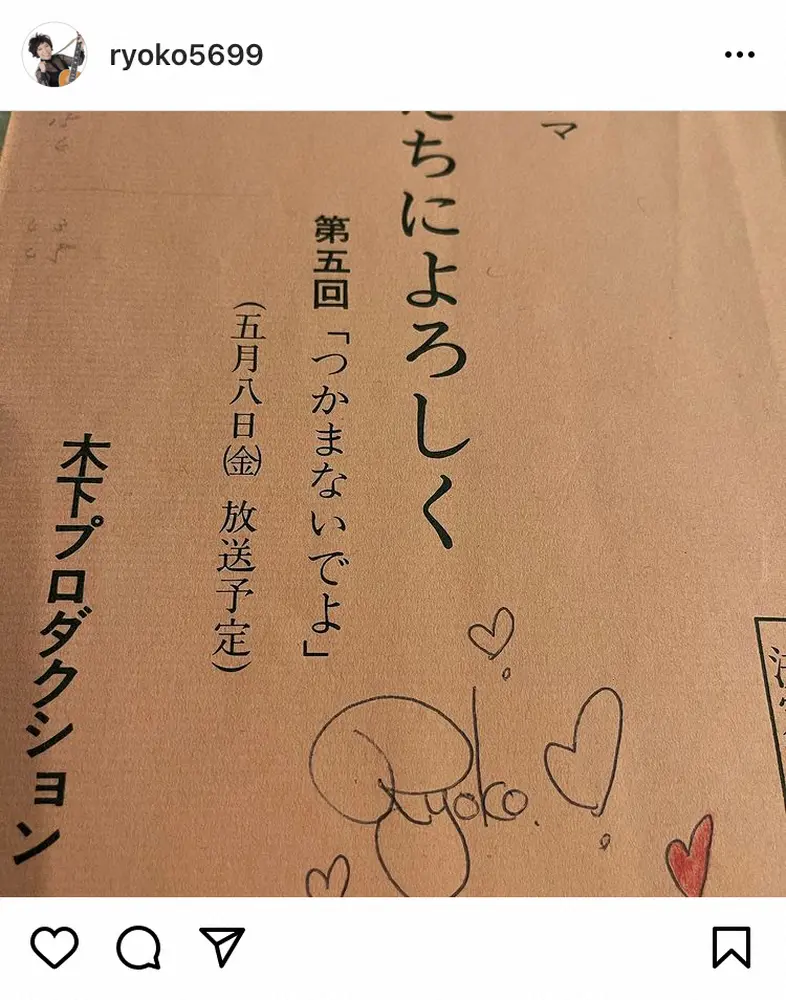 ryoko5699
マ
ちによろしく
第五回「つかまないでよ」
(五月八日㈮ 放送予定)
木下プロダクション
Ryoko.